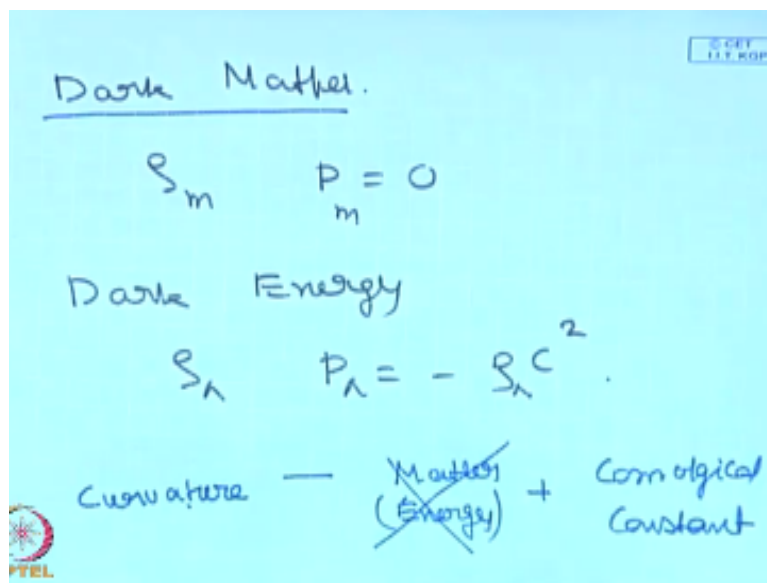 © CET
I.I.T. KGP
Dark Matter.
ρm Pm = 0
Dark Energy
ρΛ PΛ = - ρΛ C².
Curvature — Matter (Energy) + Comolgical Constant
PTEL